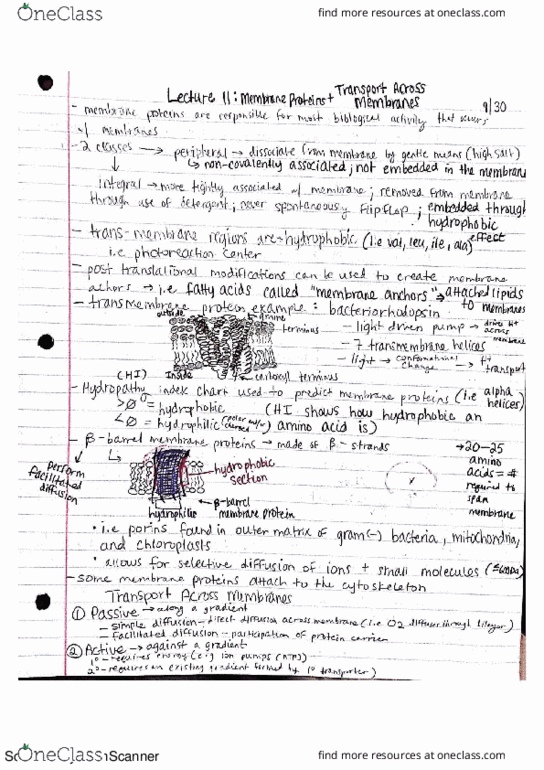 OneClass
find more resources at oneclass.com
Lecture 11: Membrane Proteins + Transport Across Membranes
9/30
- membrane proteins are responsible for most biological activity that occurs
w/ membranes
- 2 classes → peripheral → dissociate from membrane by gentle means (high salt)
↳ non-covalently associated; not embedded in the membrane
integral → more tightly associated w/ membrane; removed from membrane
through use of detergent; never spontaneously flipflap; embedded through
hydrophobic
effect
- trans-membrane regions are hydrophobic (i.e val, leu, ile, ala)
i.e. photoreaction center
- post translational modifications can be used to create membrane
achors → i.e. fatty acids called "membrane anchors" → attached lipids
to membranes
- transmembrane protein example: bacteriorhodopsin
outside
terminus
- light driven pump → drives H+
across
membrane
- 7 transmembrane helices
- light → conformational
change → H+
transport
Inside
carboxyl terminus
(HI)
- Hydropathy index chart used to predict membrane proteins (i.e alpha
helices)
>0 = hydrophobic
(HI shows how hydrophobic an
amino acid is)
<0 = hydrophilic
- β-barrel membrane proteins → made of β-strands
→ 20-25
amino
acids = #
required to
span
membrane
perform
facilitated
diffusion
hydrophobic
section
← β-barrel
membrane protein
hydrophilic
• i.e porins found in outer matrix of gram(-) bacteria, mitochondria,
and chloroplasts
• allows for selective diffusion of ions + small molecules
- some membrane proteins attach to the cytoskeleton
Transport Across Membranes
① Passive → along a gradient
- simple diffusion - direct diffusion across membrane (i.e O2 diffuse through bilayer)
- facilitated diffusion - participation of protein carrier
② Active → against a gradient
1° - requires energy (e.g ion pumps (ATP))
2° - requires an existing gradient formed by 1° transporter)
OneClass
Scanner
find more resources at oneclass.com